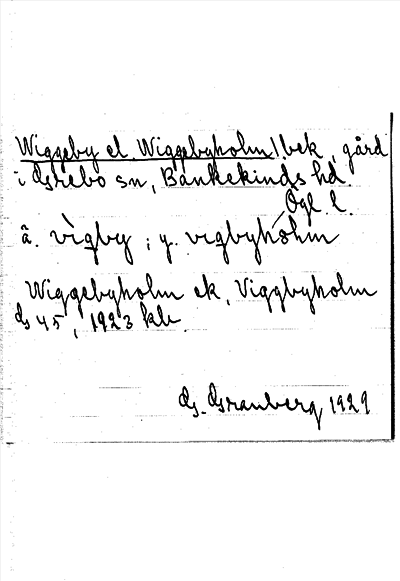 Wiggeby el. Wiggebyholm, bek, gård
i Grebo sn, Bankekinds hd
Ögl. l.
ä. vìgby ; y. vigbyhólm
Wiggebyholm ek, Viggbyholm
Gs 45, 1923 kb.
G. Granberg 1929